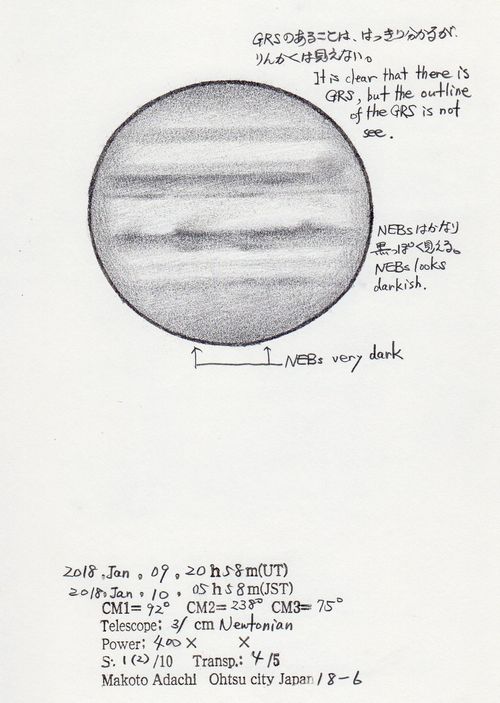 GRSのあることは、はっきり分かるが、
りんかくは見えない。
It is clear that there is
GRS, but the outline
of the GRS is not
see.
NEBsはかなり
黒っぽく見える。
NEBs looks
darkish.
NEBs very dark
2018, Jan. 09. 20h58m(UT)
2018, Jan. 10. 05h58m(JST)
CM1= 92° CM2= 238° CM3= 75°
Telescope: 31 cm Newtonian
Power: 400× ×
S: 1(2)/10 Transp.: 4/5
Makoto Adachi Ohtsu city Japan 18-6